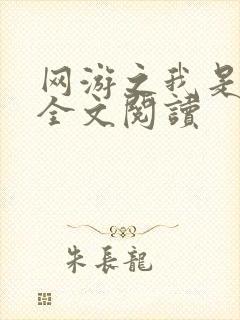 网游之我是
全文閱讀
朱長龍